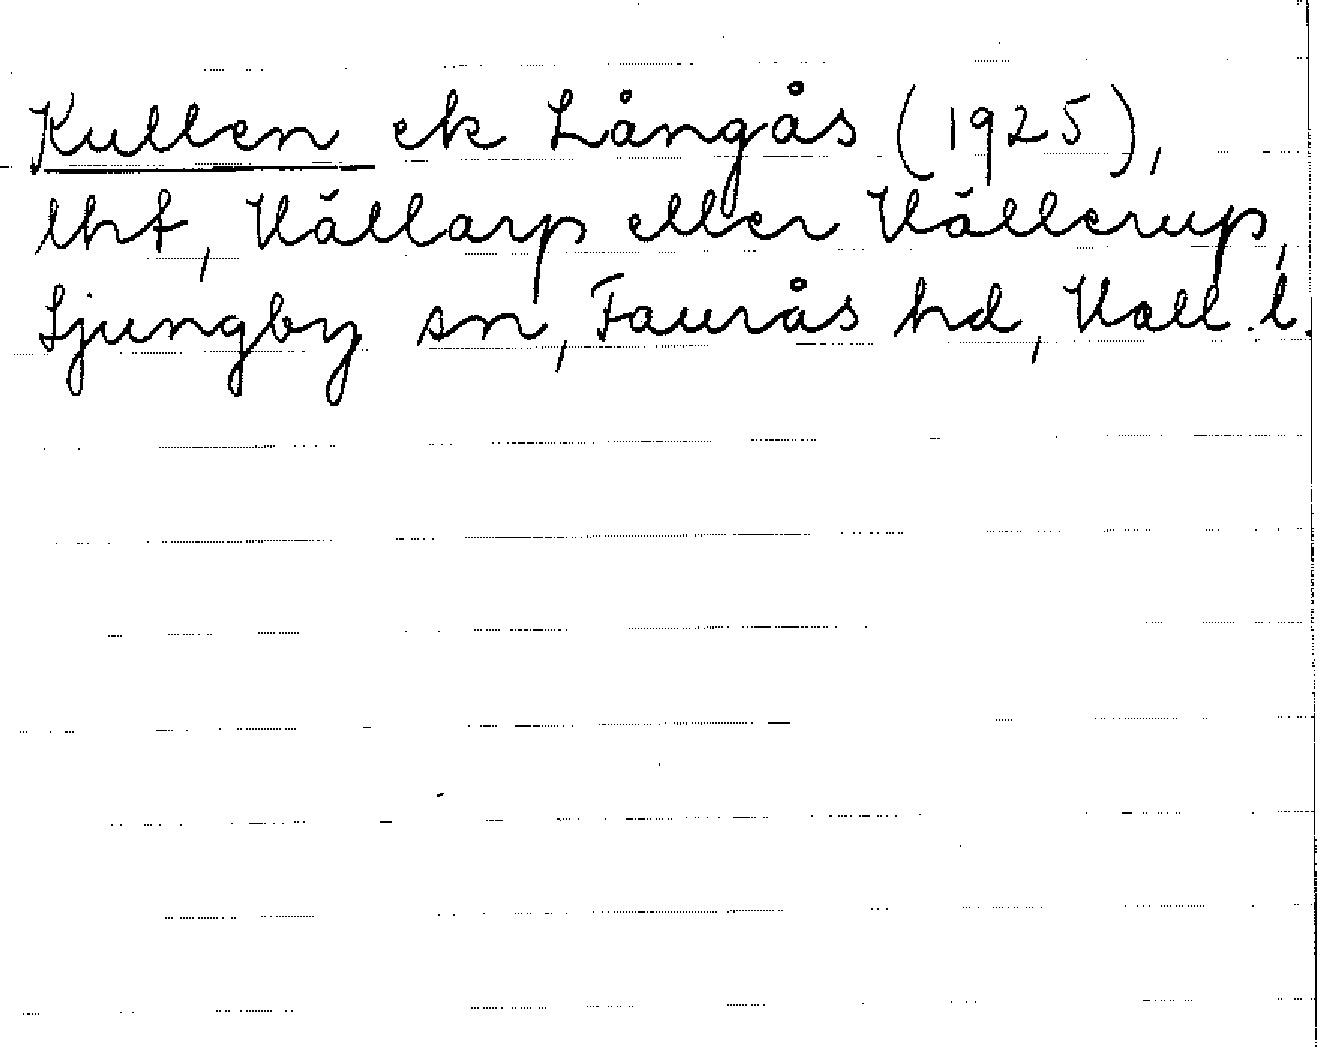 Kullen ek Långås (1925),
lht, Hällarp eller Hällerup,
Ljungby sn, Faurås hd, Hall. l.